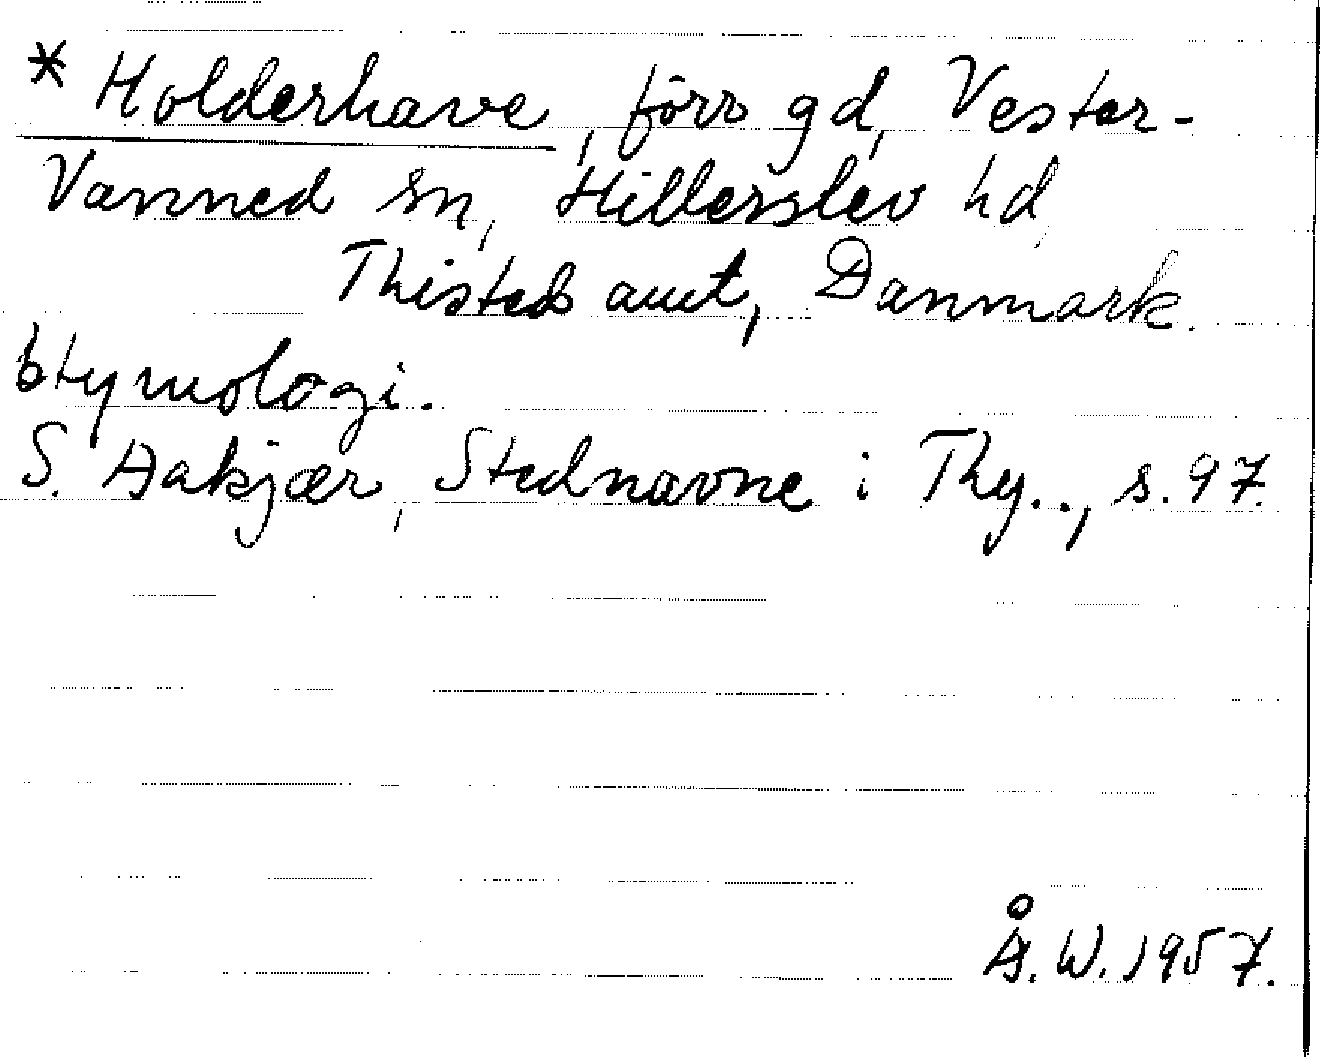 * Holderhave, förr gd, Vester-
Vanned sn, Hillerslev hd,
Thisted amt, Danmark.
Etymologi.
S. Aakjær, Stednavne i Thy.., s. 97.
Å. W. 1957.